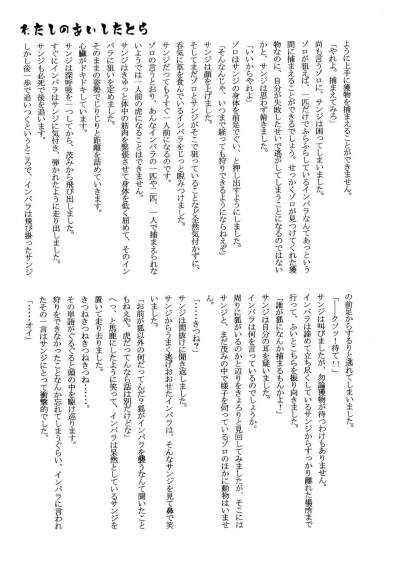 わたしのあいしたとら
ように上手に獲物を捕まえることができません。
「やれよ。捕まえてみろ」
尚も言うゾロに、サンジは困ってしまいました。
ゾロが狙えば、一匹だけでふらふらしているインパラなんてあっという
間に捕まえることができるでしょう。せっかくゾロが見つけてくれた獲
物なのに、自分が失敗したせいで逃がしてしまうことになるのではない
かと、サンジは思わず俯きました。
「いいからやれよ」
ゾロはサンジの身体を前足でぐい、と押し出すようにしました。
「そんなんじゃ、いつまで経っても狩りできるようにならねえぞ」
サンジは顔を上げました。
そしてまだゾロとサンジがそこで狙っていることなど全然気付かずに、
呑気に草を食んでいるインパラをじっと睨みつけました。
サンジだってもうすぐ一人前の虎になるのです。
ゾロの言うとおり、あんなインパラの一匹や二匹、一人で捕まえられな
いようでは一人前の虎になることはできません。
サンジはきゅっと体中の筋肉を緊張させて身体を低く屈めて、そのイン
パラに狙いを定めました。
そのままの姿勢でじりじりと距離を詰めていきます。
心臓がドキドキしています。
サンジは深呼吸を一つしてから、茂みから飛び出しました。
すぐにインパラはサンジに気付き、弾かれたように走り出しました。
サンジも必死で後を追います。
しかし後一歩で追いつくというところで、インパラは飛び掛ったサンジ
の前足からするりと逃れてしまいました。
「――クソッ！待て！」
サンジは叫びましたが、勿論獲物が待つわけもありません。
インパラは諦めて立ち尽くしているサンジからすっかり離れた場所まで
行って、ふいとこちらを振り向きました。
「誰が狐になんか捕まるもんかよー」
サンジは自分の耳を疑いました。
インパラは何を言っているのでしょうか。
周りに狐がいるのかと辺りをきょろりと見回してみましたが、そこには
サンジと、まだ茂みの中で様子を伺っているゾロのほかに動物はいませ
ん。
「……きつね？」
サンジは間抜けに聞き返しました。
サンジからうまく逃げおおせたインパラは、そんなサンジを見て鼻で笑
いました。
「お前が狐以外の何だってんだ？狐がインパラを襲うなんて聞いたこと
もねえや。虎だってんなら話は別だけどな」
へっ、と馬鹿にしたように笑って、インパラは呆然としているサンジを
置いて走り去りました。
きつねきつねきつねきつね……。
その単語がぐるぐると頭の中を駆け巡ります。
狩りをできなかったことなんか忘れてしまうぐらい、インパラに言われ
たその一言はサンジにとって衝撃的でした。
「……オイ」